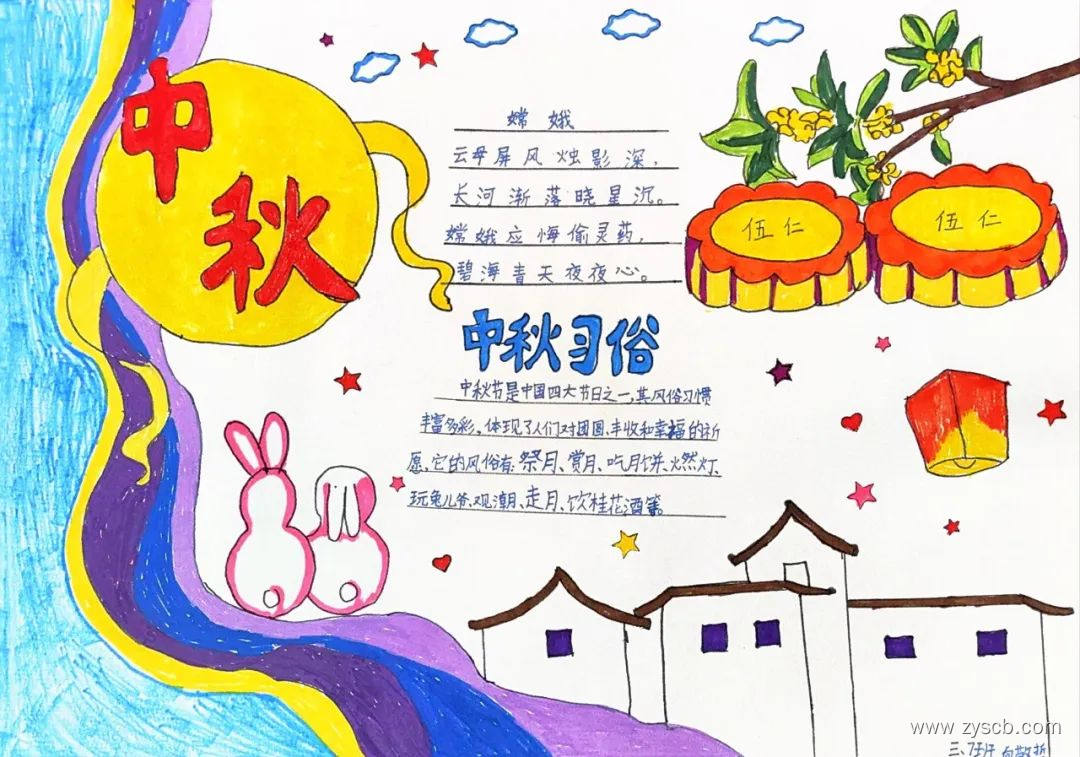 中秋
嫦娥
云母屏风烛影深，
长河渐落晓星沉。
嫦娥应悔偷灵药，
碧海青天夜夜心。
伍仁
伍仁
中秋习俗
中秋节是中国四大节日之一，其风俗习惯
丰富多彩，体现了人们对团圆、丰收和幸福的祈
愿，它的风俗有：祭月、赏月、吃月饼、燃灯、
玩兔儿爷、观潮、走月、饮桂花酒等。
www.zyscb.com